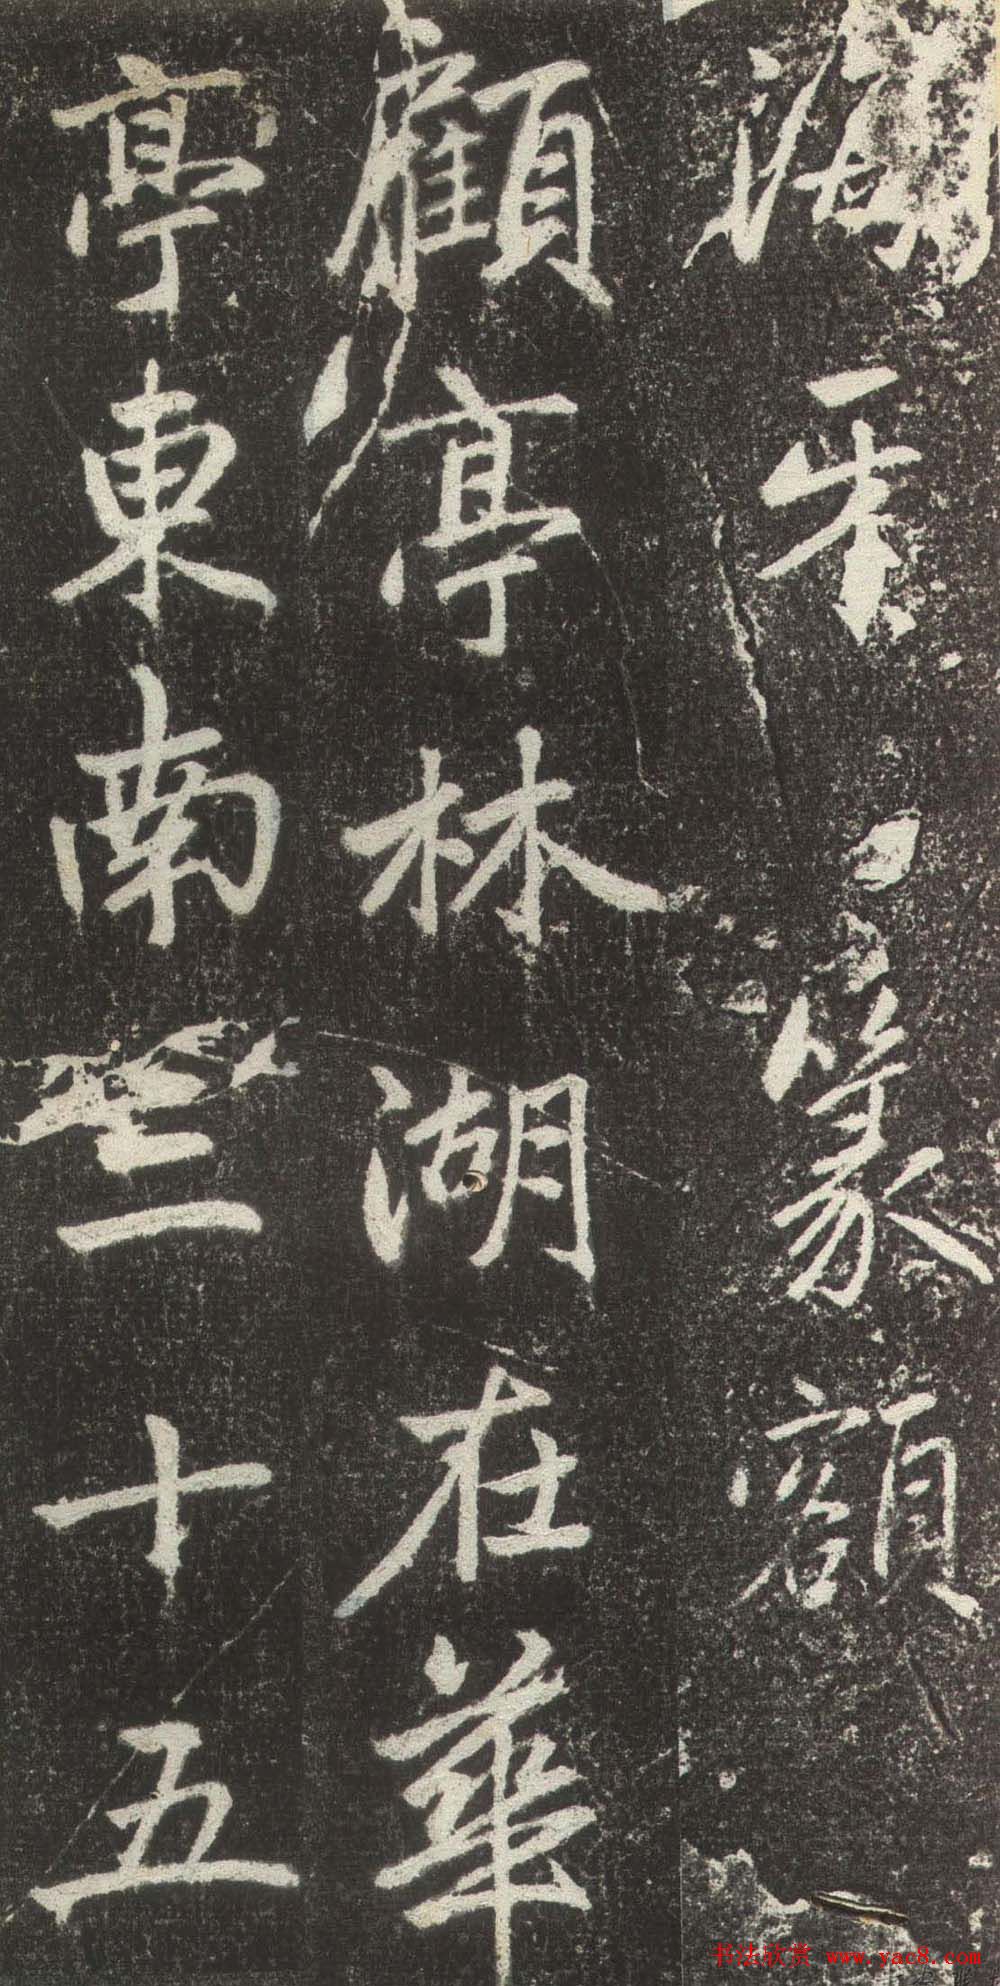 篆額
顧亭林湖在華
亭東南三十五
书法欣赏 www.yac8.com